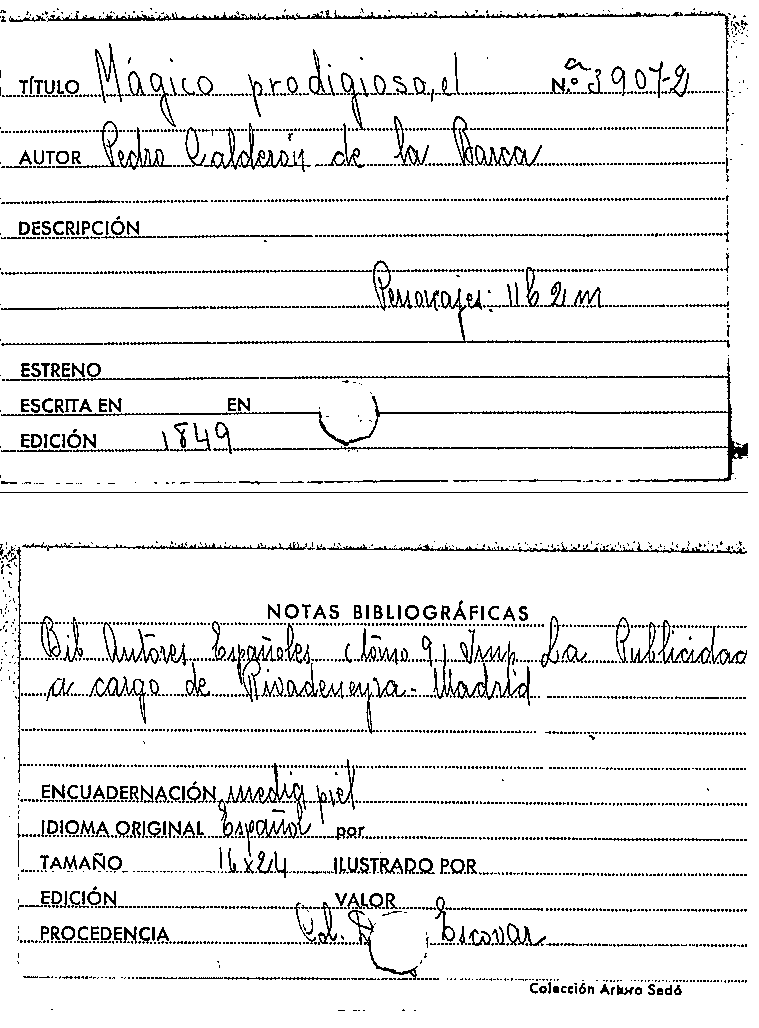 TÍTULO Mágico prodigioso, el N.º 3907-2
AUTOR Pedro Calderón de la Barca
DESCRIPCIÓN
Personajes: 11 h 2 m
ESTRENO
ESCRITA EN EN
EDICIÓN 1849
NOTAS BIBLIOGRÁFICAS
Bib Autores Españoles (tomo 9) Imp La Publicidad
a cargo de Rivadeneyra - Madrid
ENCUADERNACIÓN media piel
IDIOMA ORIGINAL Español por
TAMAÑO 16x24 ILUSTRADO POR
EDICIÓN VALOR
PROCEDENCIA Col. Escovar
Colección Arturo Sedó